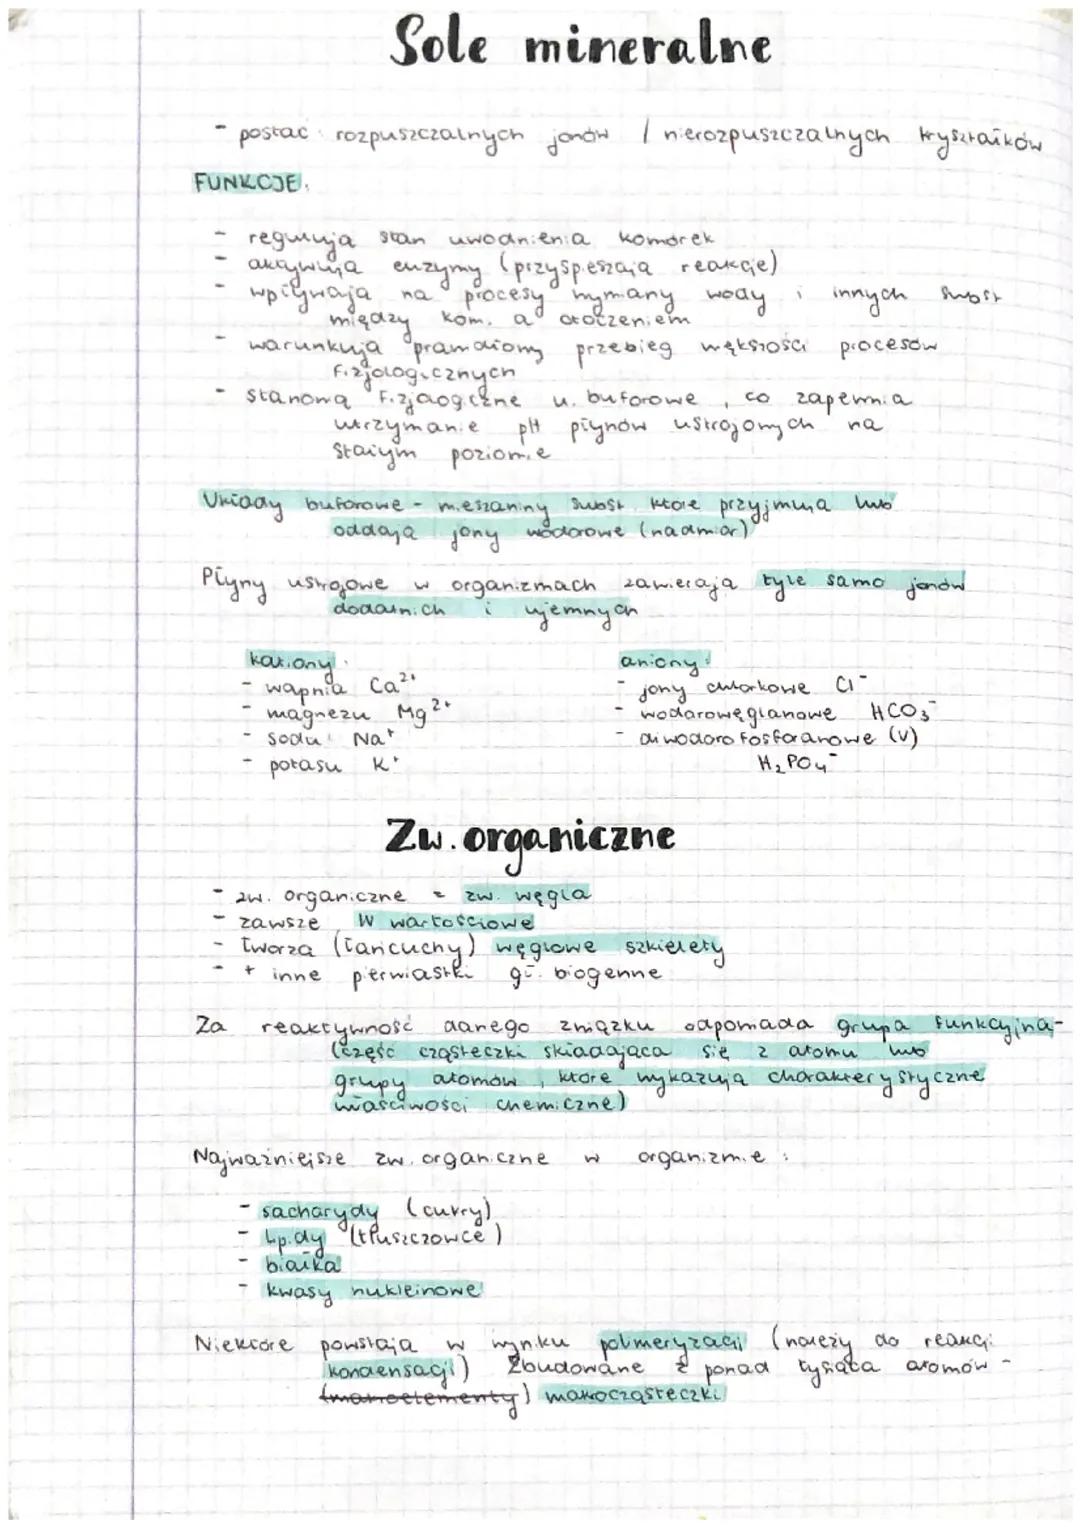 Sole mineralne
- postać: rozpuszczalnych jonów / nierozpuszczalnych kryształków
FUNKCJE:
- regulują stan uwodnienia komórek
- aktywują enzymy (przyspieszają reakcje)
- wpływają na procesy wymiany wody i innych subst
między kom. a otoczeniem
- warunkują prawidłowy przebieg większości procesów
fizjologicznych
- stanowią fizjologiczne u. buforowe, co zapewnia
utrzymanie pH płynów ustrojowych na
stałym poziomie
Układy buforowe - mieszaniny subst. które przyjmują lub
oddają jony wodorowe (nadmiar)
Płyny ustrojowe w organizmach zawierają tyle samo jonów
dodatnich i ujemnych
kationy:
- wapnia Ca²⁺
- magnezu Mg²⁺
- sodu Na⁺
- potasu K⁺
aniony:
- jony chlorkowe Cl⁻
- wodorowęglanowe HCO₃⁻
- diwodorofosforanowe (V)
H₂PO₄⁻
Zw. organiczne
- zw. organiczne = zw. węgla
- zawsze IV wartościowe
- tworzą (łańcuchy) węglowe szkielety
- + inne pierwiastki gł. biogenne
Za reaktywność danego związku odpowiada grupa funkcyjna-
(część cząsteczki składająca się z atomu lub
grupy atomów, które wykazują charakterystyczne
właściwości chemiczne)
Najważniejsze zw. organiczne w organizmie:
- sacharydy (cukry)
- Lipidy (tłuszczowce)
- białka
- kwasy nukleinowe
Niektóre powstają w wyniku polimeryzacji (należy do reakcji
kondensacji) Zbudowane z ponad tysiąca atomów -
(makroelementy) makocząsteczki